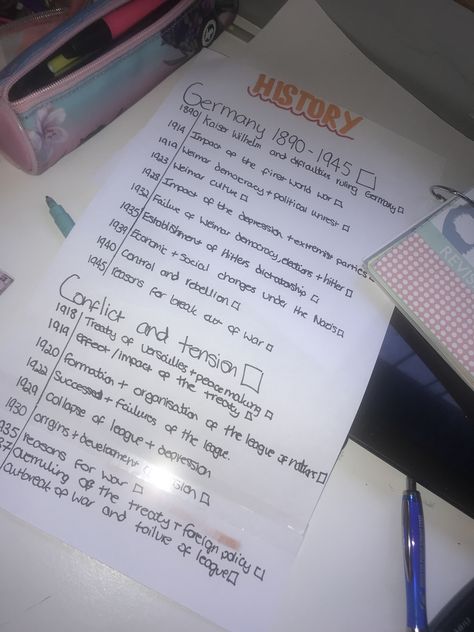 HISTORY
Germany 1890-1945 □
1890 Kaiser Wilhelm and difficulties ruling Germany □
1914 Impact of the first world war □
1919 Weimar democracy + political unrest □
1923 Weimar culture □
1928 Impact of the depression + extremist parties □
1932 Failure of Weimar democracy, elections + hitler □
1935 Establishment of Hitlers dictatorship □
1939 Economic + social changes under the Nazis □
1940 control and rebellion □
1945 reasons for break out of war □
Conflict and tension □
1918 Treaty of versailles + peacemaking □
1919 effect/impact of the treaty □
1920 formation + organisation of the league of nations □
1922 successes + failures of the league.
1929 collapse of league + depression
1930 origins + development tension □
1935 reasons for war □
overruling of the treaty + foreign policy □
outbreak of war and failure of league □
REV